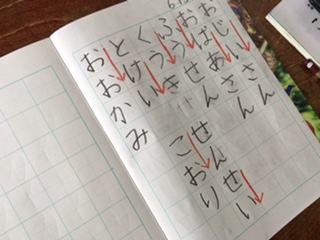 おじいさん
おばあさん
ふうせん　せんせい
くうき　こおり
とけい
おおかみ